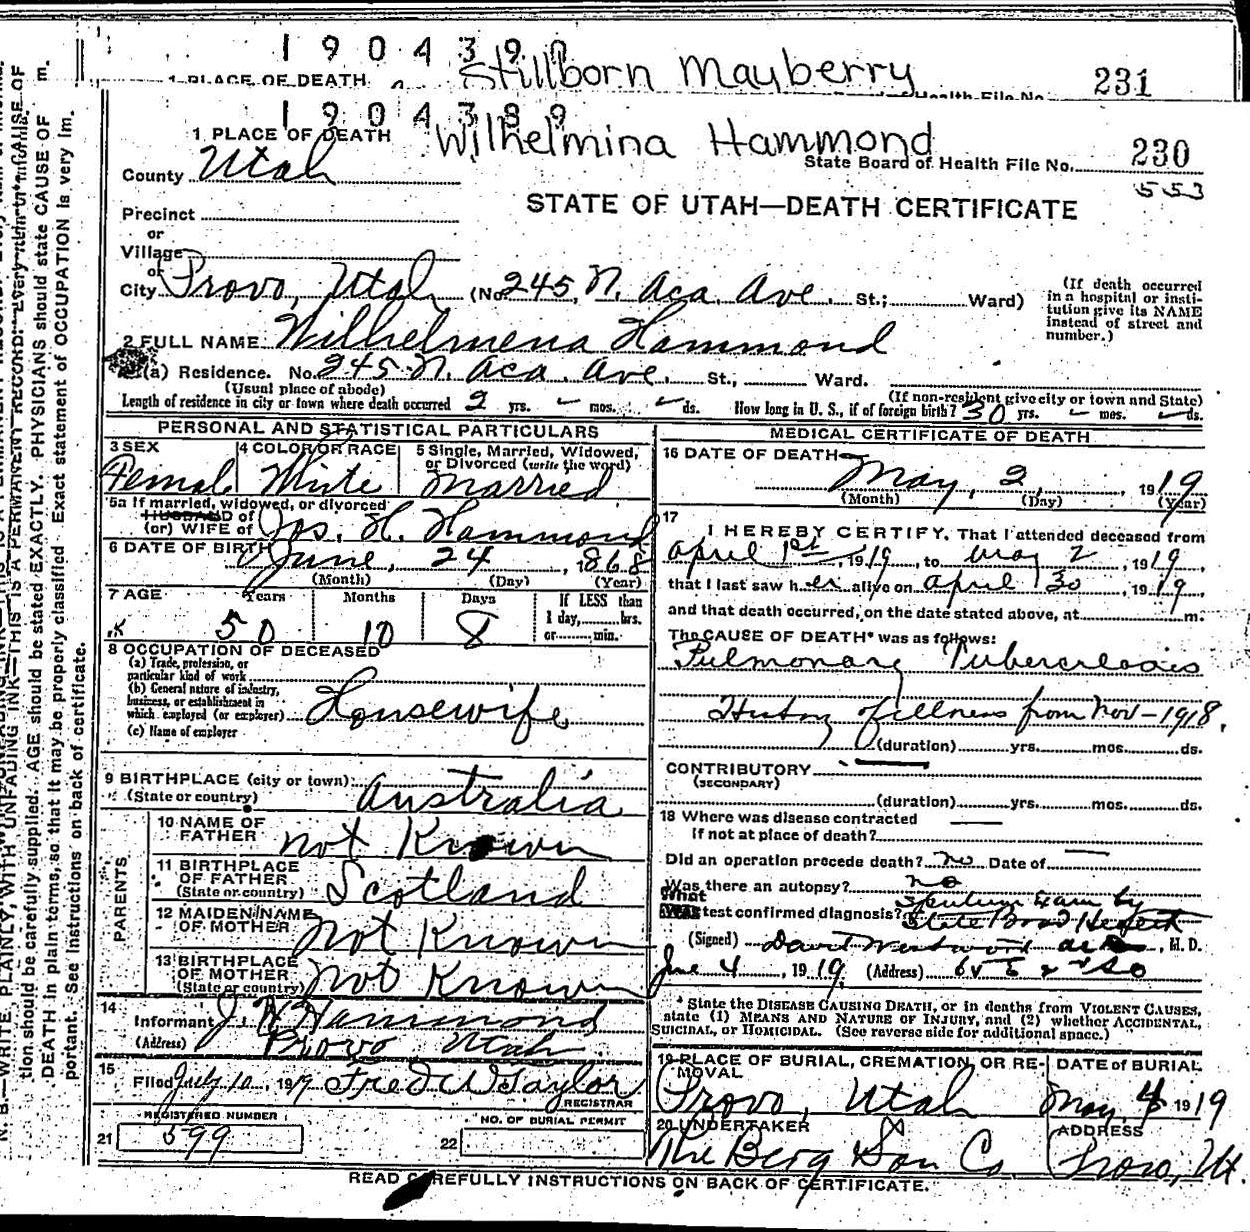 1904390
1 PLACE OF DEATH Stillborn Mayberry 231
Health File No.
1904389
1 PLACE OF DEATH Wilhelmina Hammond
State Board of Health File No. 230
County Utah 553
STATE OF UTAH—DEATH CERTIFICATE
Precinct
or
Village
or
City Provo, Utah (No 245, N. Aca. Ave. St.; Ward)
(If death occurred in a hospital or insti-
tution give its NAME
instead of street and
number.)
2 FULL NAME Wilhelmena Hammond
(a) Residence. No. 245 N. Aca. Ave. St., Ward.
(Usual place of abode) (If non-resident give city or town and State)
Length of residence in city or town where death occurred 2 yrs. – mos. – ds. How long in U. S., if of foreign birth? 30 yrs. – mos. – ds.
PERSONAL AND STATISTICAL PARTICULARS
3 SEX 4 COLOR OR RACE 5 Single, Married, Widowed,
or Divorced (write the word)
Female White Married
5a If married, widowed, or divorced
HUSBAND of
(or) WIFE of Jos. H. Hammond
6 DATE OF BIRTH June, 24, 1868
(Month) (Day) (Year)
7 AGE Years Months Days If LESS than
1 day, hrs.
or min.
50 10 8
8 OCCUPATION OF DECEASED
(a) Trade, profession, or
particular kind of work
(b) General nature of industry,
business, or establishment in
which employed (or employer) Housewife
(c) Name of employer
9 BIRTHPLACE (city or town)
(State or country) Australia
PARENTS
10 NAME OF
FATHER not Known
11 BIRTHPLACE
OF FATHER
(State or country) Scotland
12 MAIDEN NAME
OF MOTHER Not Known
13 BIRTHPLACE
OF MOTHER
(State or country) Not Known
14
Informant J H Hammond
(Address) Provo Utah
15
Filed July 10, 1919 Fred W Taylor
REGISTRAR
REGISTERED NUMBER NO. OF BURIAL PERMIT
21 599 22
MEDICAL CERTIFICATE OF DEATH
16 DATE OF DEATH
May, 2, 1919
(Month) (Day) (Year)
17
I HEREBY CERTIFY, That I attended deceased from
April 1st, 1919, to May 2, 1919
that I last saw her alive on April 30, 1919,
and that death occurred, on the date stated above, at m.
The CAUSE OF DEATH* was as follows:
Pulmonary Tuberculosis
History of illness from Nov-1918.
(duration) yrs. mos. ds.
CONTRIBUTORY
(SECONDARY)
(duration) yrs. mos. ds.
18 Where was disease contracted
if not at place of death?
Did an operation precede death? no Date of
Was there an autopsy? no
What
test confirmed diagnosis? Sputum Exam by
State Board Health
(Signed) David Westwood M. D.
June 4, 1919 (Address)
* State the DISEASE CAUSING DEATH, or in deaths from VIOLENT CAUSES,
state (1) MEANS AND NATURE OF INJURY, and (2) whether ACCIDENTAL,
SUICIDAL, or HOMICIDAL. (See reverse side for additional space.)
19 PLACE OF BURIAL, CREMATION, OR RE-
MOVAL
Provo, Utah
DATE of BURIAL
May 4 1919
20 UNDERTAKER
The Berg Son Co
ADDRESS
Provo, Ut.
READ CAREFULLY INSTRUCTIONS ON BACK OF CERTIFICATE.
N. B.—WRITE PLAINLY, WITH UNFADING INK—THIS IS A PERMANENT RECORD. Every
tion should be carefully supplied. AGE should be stated EXACTLY. PHYSICIANS should state CAUSE OF
DEATH in plain terms, so that it may be properly classified. Exact statement of OCCUPATION is very im-
portant. See instructions on back of certificate.